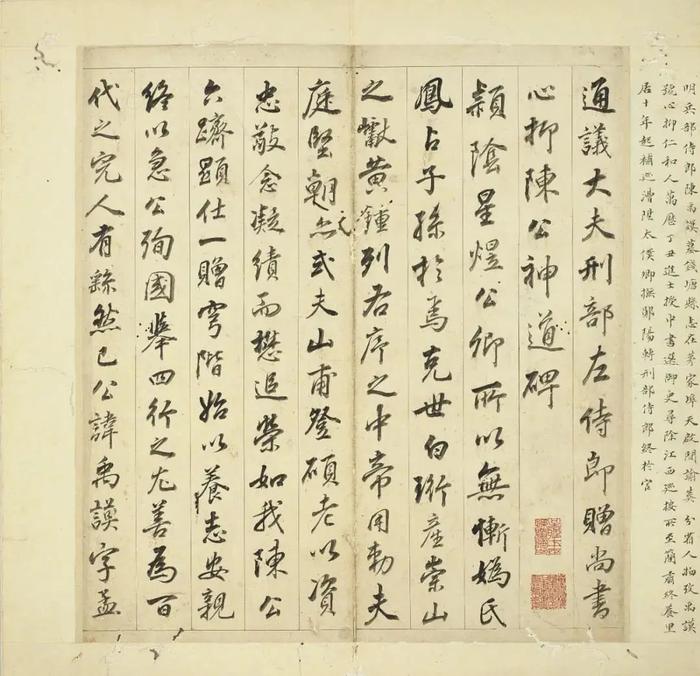 明兵部侍郎陳禹謨墓錢塘縣志在茅家埠天啟間諭葬 分省人物攷禹謨
號心抑仁和人萬曆丁丑進士授中書選御史尋除江西巡按所至蘭肅終養里
居十年起補巡漕陞太僕卿撫鄖陽轉刑部侍郎終於官
通議大夫刑部左侍郎贈尚書
心抑陳公神道碑
潁陰星煜公卿所以無慚媯氏
鳳占子孫於焉克世白珩產崇山
之巘黃鍾列右序之中帝用勑夫
庭堅朝式夫山甫登碩老以資
忠敬念凝績而懋追榮如我陳公
六躋顯仕一贈穹階始以養志安親
終以急公殉國舉四行之尤善為百
代之完人有繇然已公諱禹謨字孟